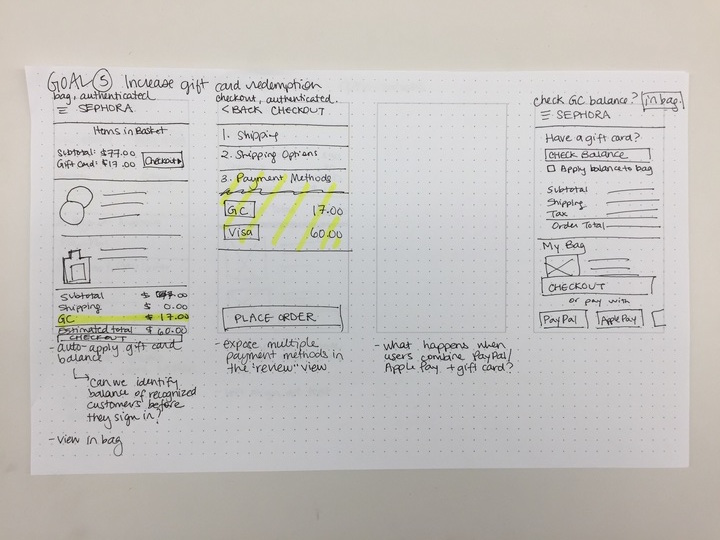 GOAL 5 Increase gift card redemption
bag, authenticated
☰ SEPHORA
Items in Basket
Subtotal: $77.00
Gift Card: $17.00
Checkout
Subtotal $ 77.00
Shipping $ 0.00
GC $ 17.00
Estimated total $ 60.00
CHECKOUT
- auto-apply gift card
balance
↳ Can we identify
balance of recognized
customers before
they sign in?
- view in bag
checkout, authenticated.
< BACK CHECKOUT
1. Shipping
2. Shipping Options
3. Payment Methods
GC 17.00
Visa 60.00
PLACE ORDER
- expose multiple
payment methods in
the "review" view
- what happens when
users combine PayPal/
Apple Pay + gift card?
check GC balance? in bag.
☰ SEPHORA
Have a gift card?
CHECK Balance
☐ Apply balance to bag
Subtotal
Shipping
Tax
Order Total
My Bag
CHECKOUT
or pay with
PayPal Apple Pay